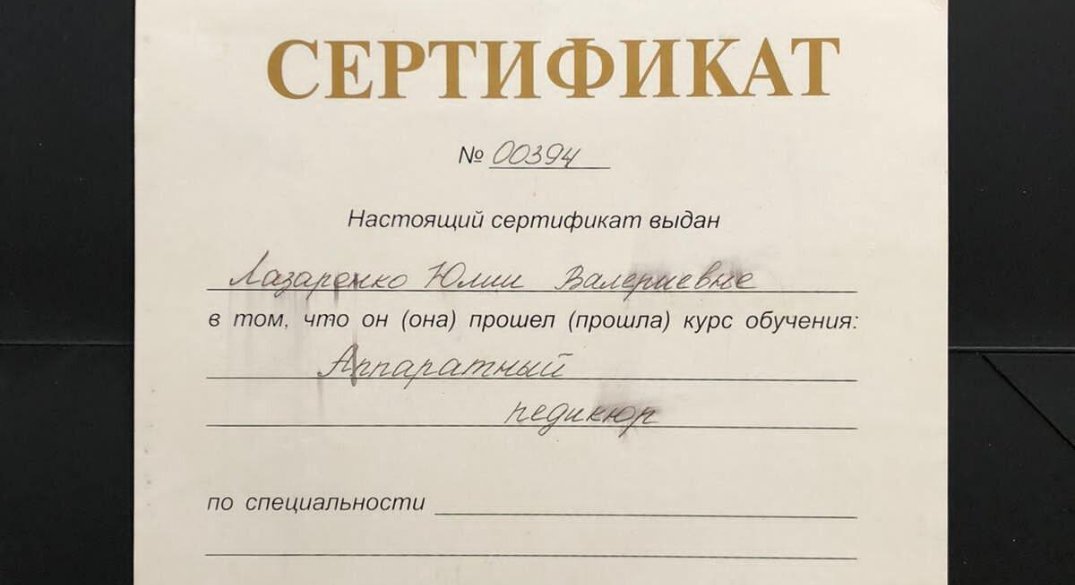 СЕРТИФИКАТ
№ 00394
Настоящий сертификат выдан
Лазаренко Юлии Валериевне
в том, что он (она) прошел (прошла) курс обучения:
Аппаратный
педикюр
по специальности